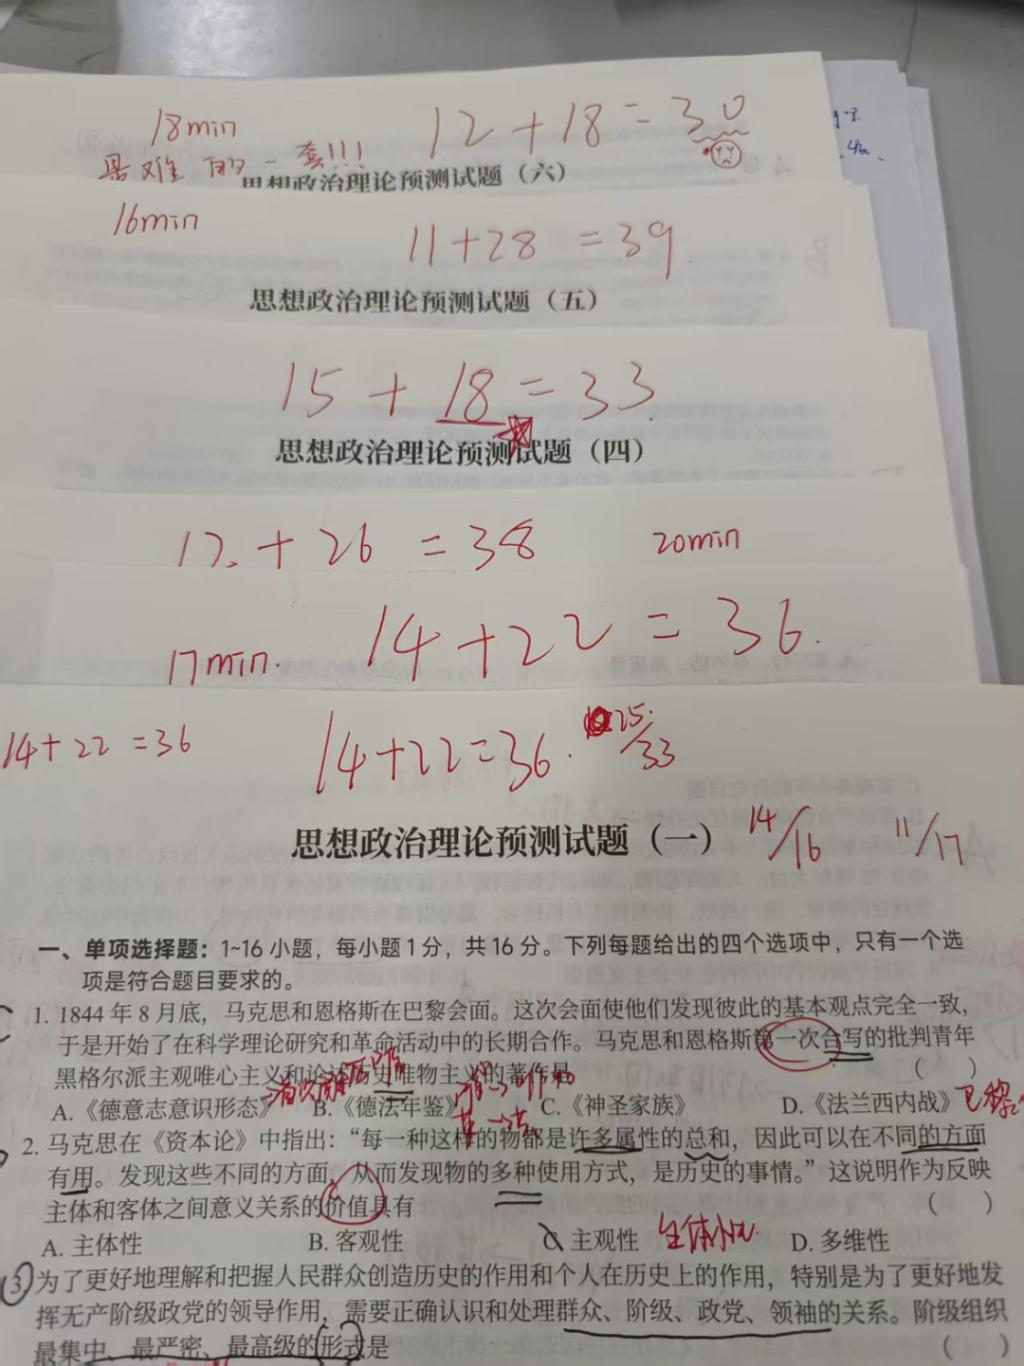 18min
12+18=30
最难的一套!!!
思想政治理论预测试题（六）
16min
11+28=39
思想政治理论预测试题（五）
15+18=33
思想政治理论预测试题（四）
12+26=38
20min
14+22=36.
17min.
14+22=36
14+22=36.
25/33
思想政治理论预测试题（一）
14/16
11/17
一、单项选择题：1~16小题，每小题1分，共16分。下列每题给出的四个选项中，只有一个选
项是符合题目要求的。
1. 1844年8月底，马克思和恩格斯在巴黎会面。这次会面使他们发现彼此的基本观点完全一致，
于是开始了在科学理论研究和革命活动中的长期合作。马克思和恩格斯第一次合写的批判青年
黑格尔派主观唯心主义和论述历史唯物主义的著作是（ ）
A.《德意志意识形态》 B.《德法年鉴》 C.《神圣家族》 D.《法兰西内战》
巴黎
2. 马克思在《资本论》中指出：“每一种这样的物都是许多属性的总和，因此可以在不同的方面
有用。发现这些不同的方面，从而发现物的多种使用方式，是历史的事情。”这说明作为反映
主体和客体之间意义关系的价值具有（ ）
A. 主体性 B. 客观性 C. 主观性 D. 多维性
3 为了更好地理解和把握人民群众创造历史的作用和个人在历史上的作用，特别是为了更好地发
挥无产阶级政党的领导作用，需要正确认识和处理群众、阶级、政党、领袖的关系。阶级组织
最集中、最严密、最高级的形式是（ ）